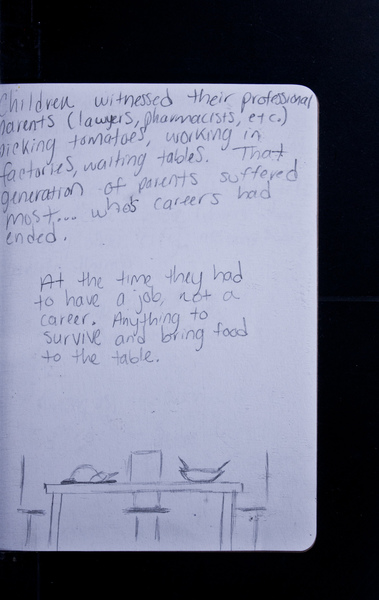 Children witnessed their professional
parents (lawyers, pharmacists, etc.)
picking tomatoes, working in
factories, waiting tables. That
generation of parents suffered
most... who's careers had
ended.
At the time they had
to have a job, not a
career. Anything to
survive and bring food
to the table.